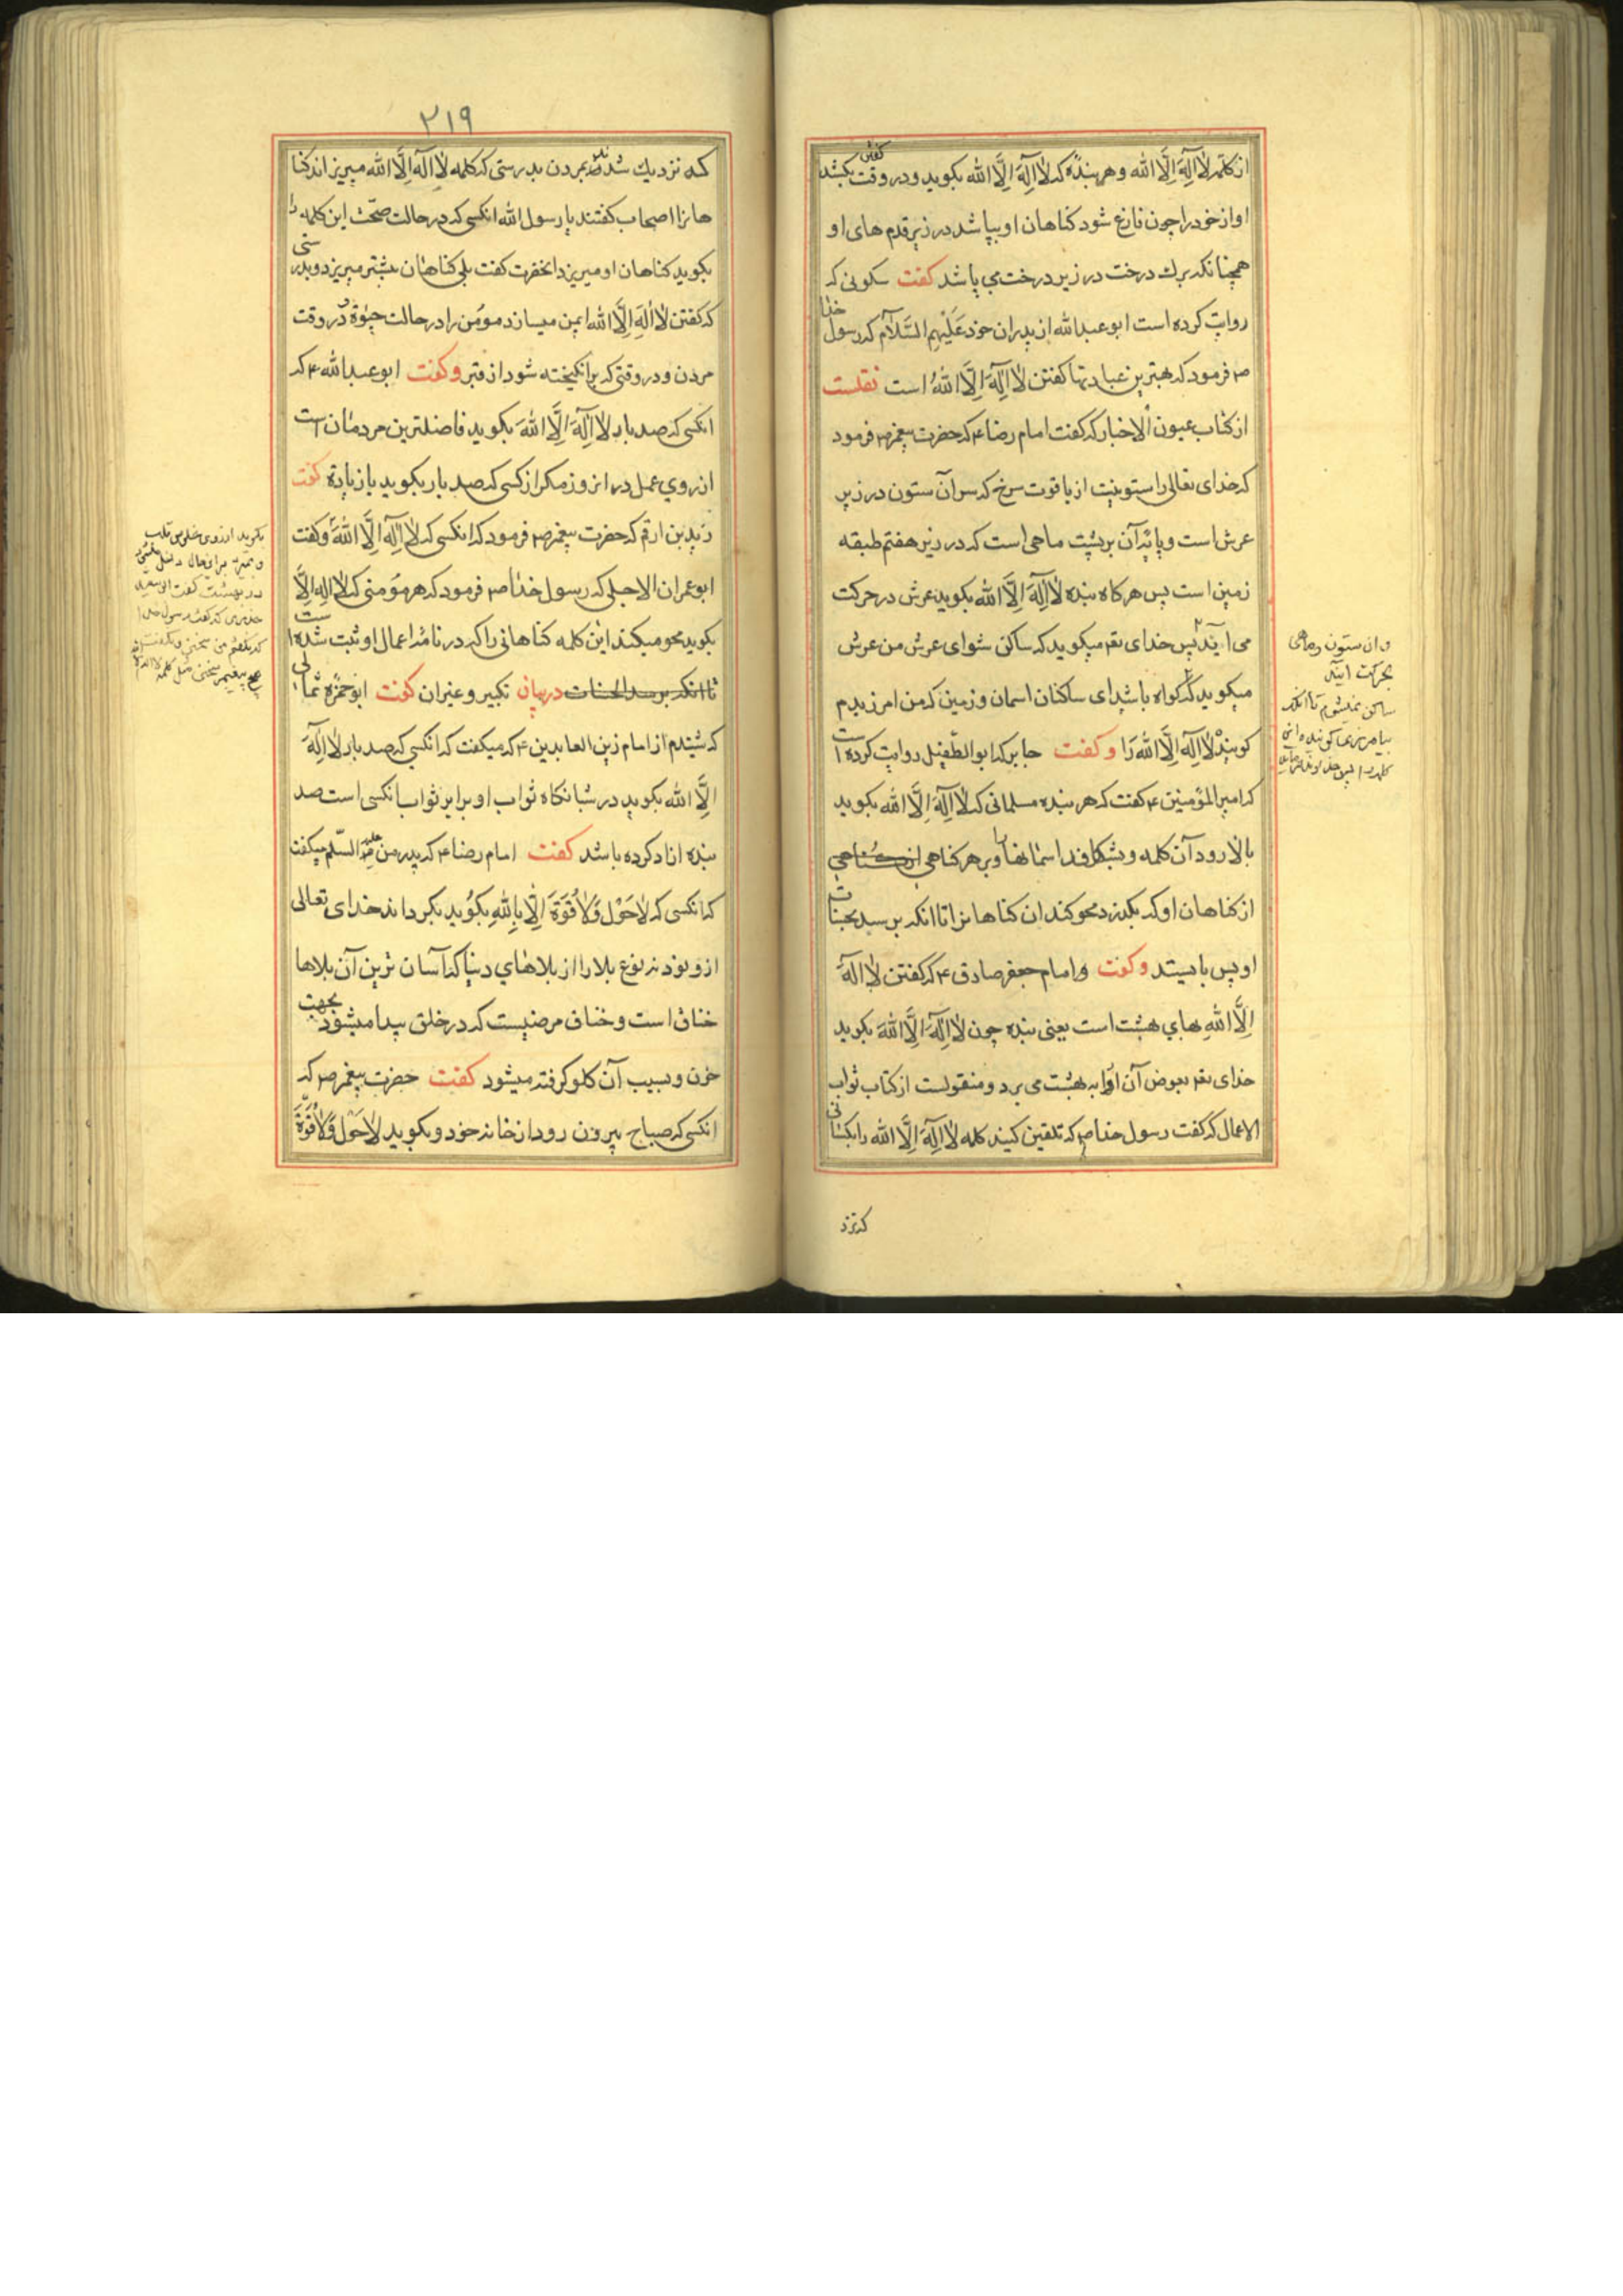 از کلمه لا اله الا الله وهر بنده که لا اله الا الله بکوید و در وقت کفتن بکشد
اواز خود را چون فارغ شود کناهان او بپاشد در زیر قدم های او
همچنانکه برك درخت در زیر درخت می پاشد کفت سکونی که
روایت کرده است ابو عبد الله از پدران خود عَلَیْهِمِ السَّلامُ که رسول خدا
ص فرمود که بهترین عبادتها کفتن لا اله الا اللهُ است نقلست
از کتاب عیون الاخبار که کفت امام رضا ع که حضرت پیغمبر ص فرمود
که خدای تعالی را ستونیست از یاقوت سرخ که سر آن ستون در زیر
عرش است و پایه آن بر پشت ماهی است که در زیر هفتم طبقه
زمین است پس هر کاه بنده لا اله الا الله بکوید عرش در حرکت
می اید پس خدای تع میکوید که ساکن شو ای عرش من عرش
میکوید که کواه باشید ای ساکنان اسمان و زمین که من امرزیدم
کوینده لا اله الا الله را و کفت جابر که ابو الطفیل روایت کرده است
که امیر المؤمنین ع کفت که هر بنده مسلمانی که لا اله الا الله بکوید
بالا رود آن کلمه و بشکافد اسمانها را و بر هر کناهی از کناهی
از کناهان او که بکذرد محو کند ان کناها نرا تا انکه برسد بحسنات
او پس بایستد و کفت و امام جعفر صادق ع که کفتن لا اله
الا اللهِ بهای بهشت است یعنی بنده چون لا اله الا الله بکوید
خدای تع بعوض آن او را به بهشت می برد و منقولست از کتاب ثواب
الاعمال که کفت رسول خدا ص که تلقین کنید کلمه لا اله الا الله را بکسانی
که نزد
و ان ستون و ماهی
بحرکت ایند
ساکن نمیشوم تا انکه
بیامرزی کوینده این
کلمه را پس خداوند
٢١٩
که نزدیك شده بمردن بدرستی که کلمه لا اله الا الله میریزاند کنا
ها نرا اصحاب کفتند یا رسول الله انکسی که در حالت صحّت این کلمه را
بکوید کناهان او میریزد انحضرت کفت بلی کناهان بیشتر میریزد و بدرستی
که کفتن لا اله الا الله ایمن میسازد مومن را در حالت حیوة و در وقت
مردن و در وقتی که برانکیخته شود از قبر و کفت ابو عبد الله ع که
انکسی که صد بار لا اله الا الله بکوید فاضلترین مردمان است
از روی عمل در ان روز مکر از کسی که صد بار بکوید یا زیاده کفت
زید بن ارقم که حضرت پیغمبر ص فرمود که انکسی که لا اله الا الله و کفت
ابو عمران الاجلی که رسول خدا ص فرمود که هر مؤمنی که لا اله الا
بکوید محو میکند این کلمه کناهانی را که در نامه اعمال او ثبت شده است
تا انکه برسد الحسنات درمیان تکبیر و غیر ان کفت ابو حمزه ثمالی
که شنیدم از امام زین العابدین ع که میکفت که انکسی که صد بار لا اله
الا الله بکوید در شبانکاه ثواب او برابر ثواب انکسی است صد
بنده ازاد کرده باشد کفت امام رضا ع که پدر من علیه السّلم میکفت
که انکسی که لا حَوْلَ وَلا قُوَّةَ اِلّا بِاللهِ بکوید بکرداند خدای تعالی
از و نود نه نوع بلا را از بلاهای دنیا که آسان ترین آن بلاها
خناق است و خناق مرضیست که در خلق پیدا میشود بجهت
خون و بسبب آن کلو کرفته میشود کفت حضرت پیغمبر ص که
انکسی که صباح بیرون رود از خانه خود و بکوید لا حَوْل وَلا قُوَّةَ
بکوید از روی خلوص قلب
در بهشت کفت ابو سعید
خدری که کفت رسول خدا
که نکفتم من سخنی و نکفت
هیچ پیغمبر سخنی مثل کلمه لا اله